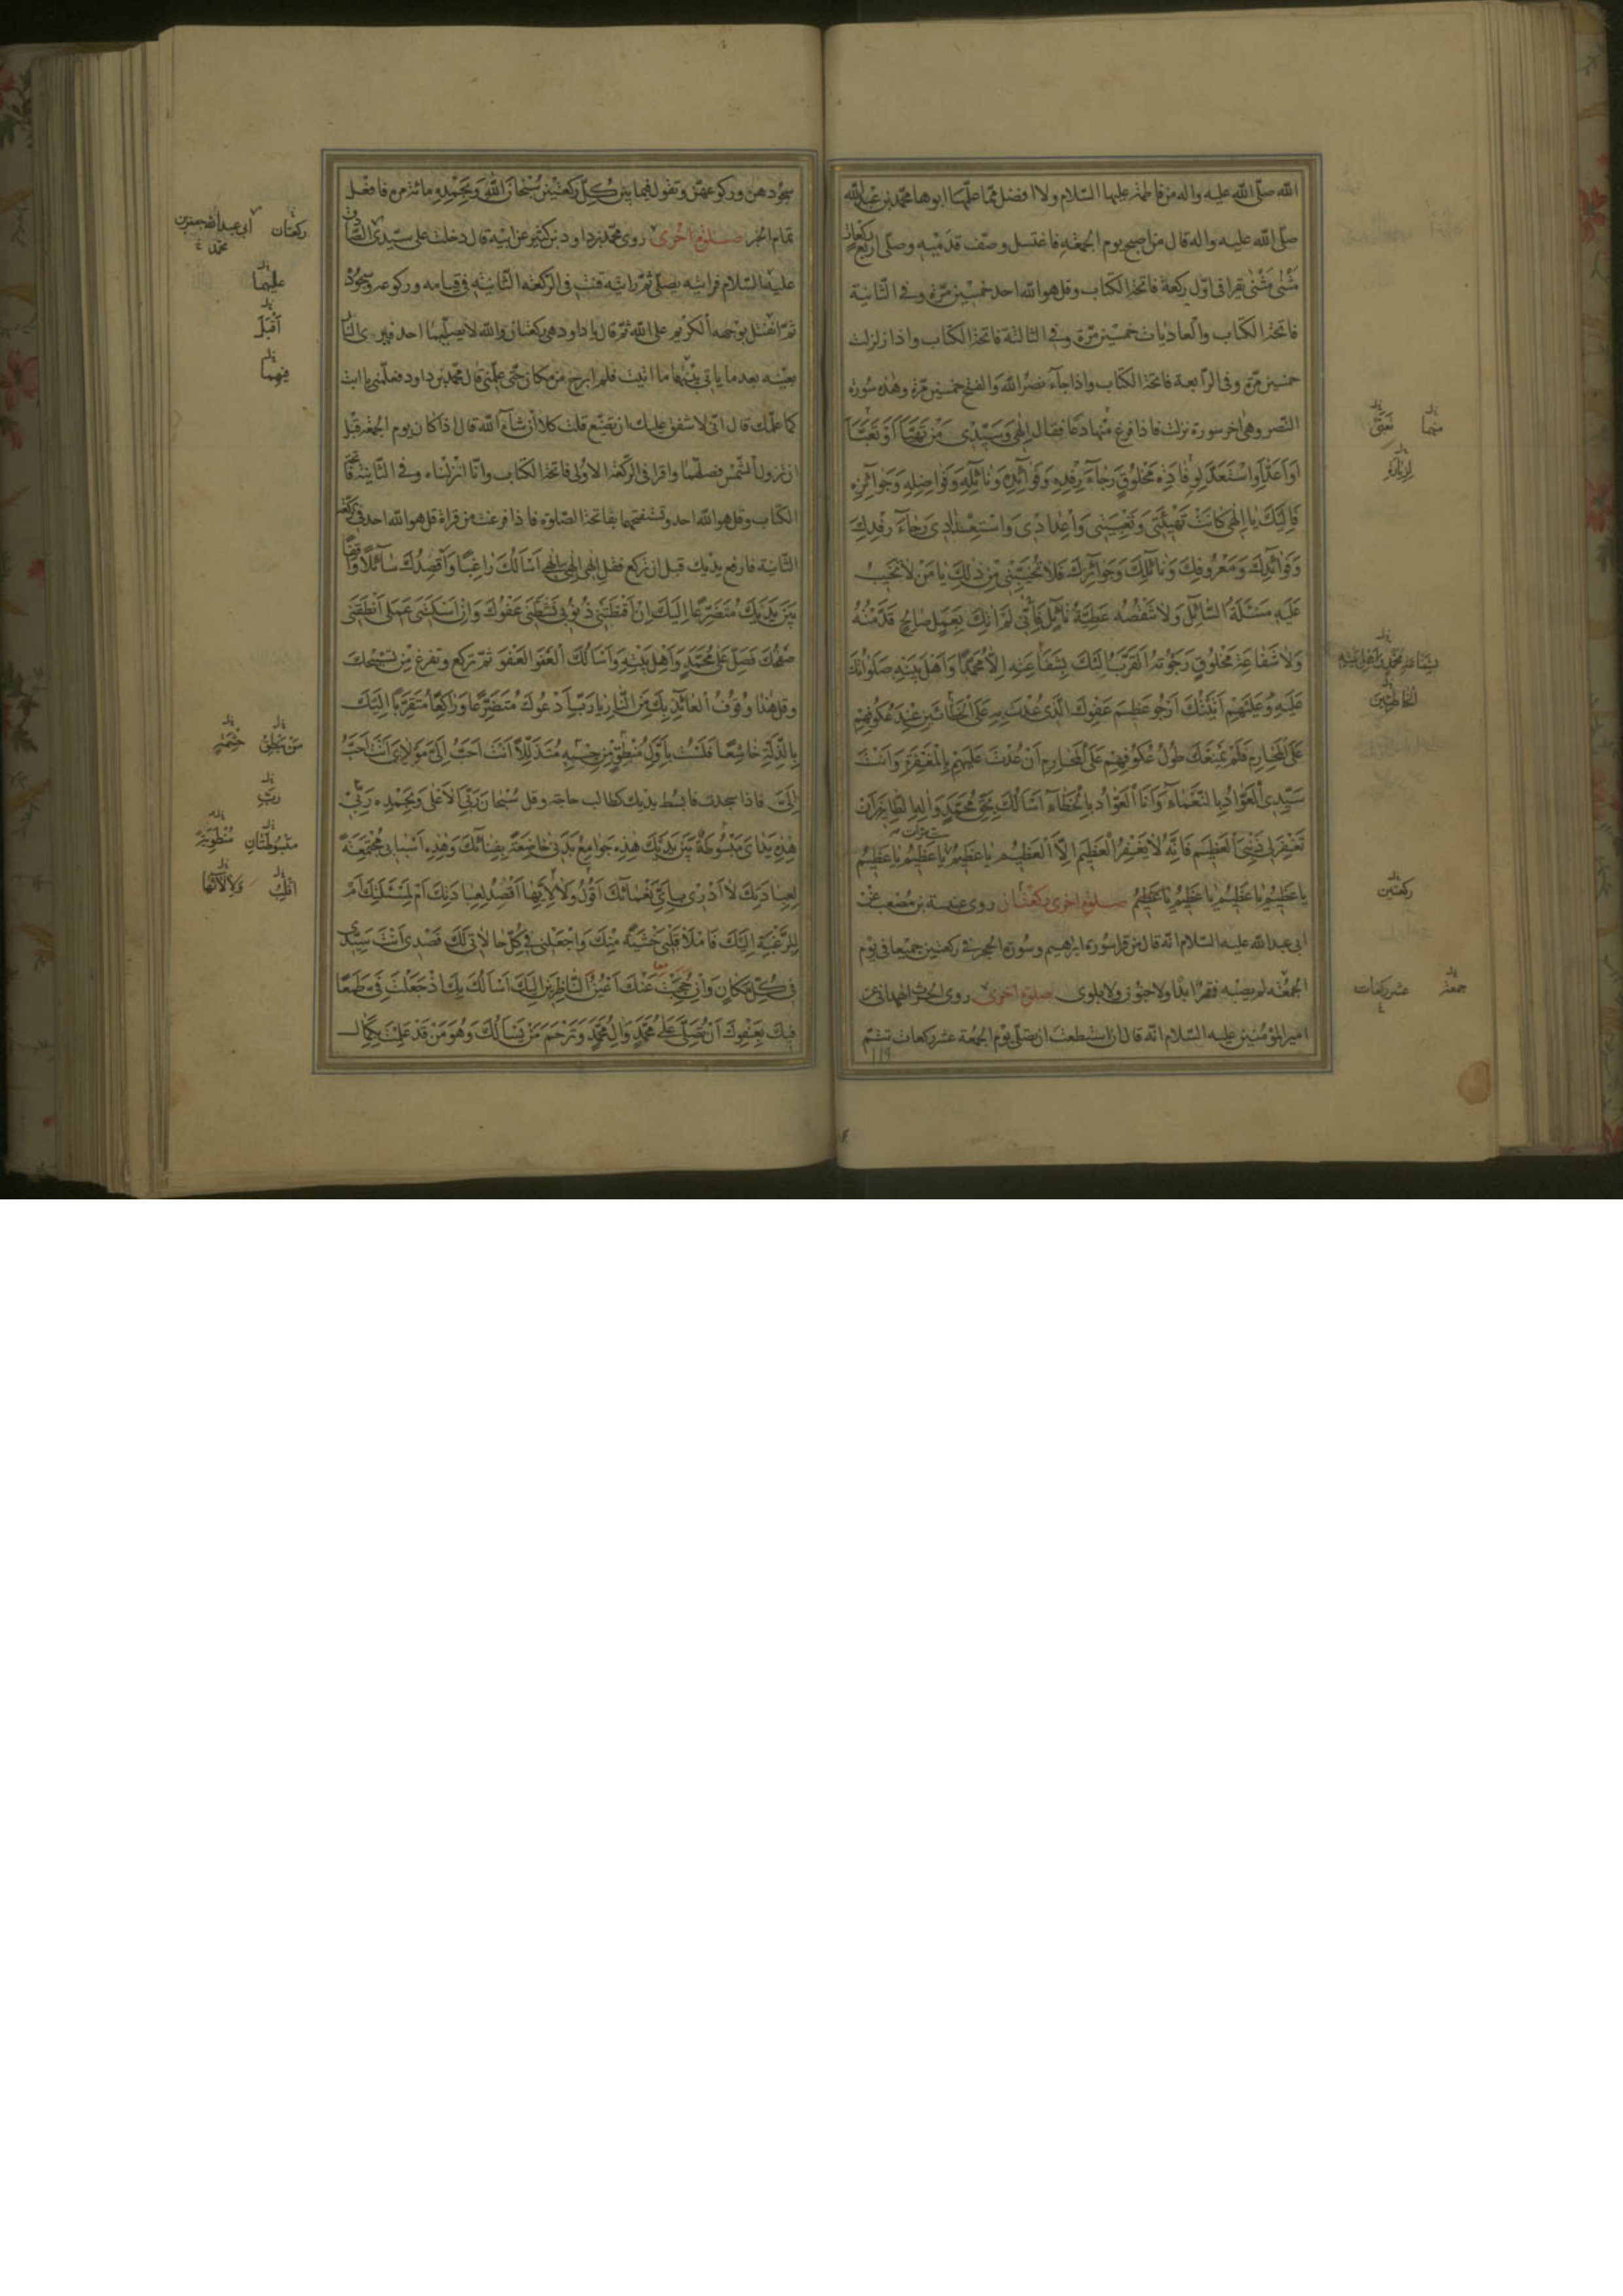 الله صلّى الله عليه واله من فاطمة عليها السّلام ولا افضل ممّا علّمها ابوها محمّد بن عبدالله
صلّى الله عليه واله قال من اصبح يوم الجمعة فاغتسل وصفّ قدميه وصلّى اربع ركعات
مَثْنى مَثْنى يقرا فى اوّل ركعة فاتحة الكتاب وقل هو الله احد خمسين مرّة وفى الثّانية
فاتحة الكتاب والعاديات خمسين مرّة وفى الثالثة فاتحة الكتاب واذا زلزلت
خمسين مرّة وفى الرّابعة فاتحة الكتاب واذا جآء نصر الله والفتح خمسين مرّة وهذه سورة
النّصر وهى اخر سورة نزلت فاذا فرغ منها دعا فقال اِلهى وَسَيِّدى مَنْ تَهَيَّاَ اَوْ تَعَبَّاَ
اَوْ اَعَدَّ اَوِ اسْتَعَدَّ لِوِفادَةِ مَخْلُوقٍ رَجآءَ رِفْدِهِ وَفَوآئِدِهِ وَنآئِلِهِ وَفَواضِلِهِ وَجَوآئِزِهِ
فَاِلَيْكَ يا اِلهى كانَتْ تَهْيِئَتى وَتَعْبِيَتى وَاِعْدادى وَاسْتِعْدادى رَجآءَ رِفْدِكَ
وَفَوآئِدِكَ وَمَعْرُوفِكَ وَنآئِلِكَ وَجَوآئِزِكَ فَلا تُخَيِّبْنى مِنْ ذلِكَ يا مَنْ لا تَخيبُ
عَلَيْهِ مَسْئَلَةُ السّآئِلِ وَلا تَنْقُصُهُ عَطِيَّةُ نآئِلٍ فَاِنّى لَمْ اتِكَ بِعَمَلٍ صالِحٍ قَدَّمْتُهُ
وَلا شَفاعَةِ مَخْلُوقٍ رَجَوْتُهُ اَتَقَرَّبُ اِلَيْكَ بِشَفاعَتِهِ اِلاّ مُحَمَّدًا وَاَهْلَ بَيْتِهِ صَلَواتُكَ
عَلَيْهِ وَعَلَيْهِمْ اَتَيْتُكَ اَرْجُو عَظيمَ عَفْوِكَ الَّذى عُدْتَ بِهِ عَلَى الْخَطّائينَ عِنْدَ عُكُوفِهِمْ
عَلَى الْمَحارِمِ فَلَمْ يَمْنَعْكَ طُولُ عُكُوفِهِمْ عَلَى الْمَحارِمِ اَنْ عُدْتَ عَلَيْهِمْ بِالْمَغْفِرَةِ وَاَنْتَ
سَيِّدى الْعَوّادُ بِالنَّعْمآءِ وَاَنَا الْعَوّادُ بِالْخَطآءِ اَسْاَلُكَ بِحَقِّ مُحَمَّدٍ وَالِهِ الطّاهِرينَ اَنْ
تَغْفِرَ لى ذَنْبِىَ الْعَظيمَ فَاِنَّهُ لا يَغْفِرُ الْعَظيمَ اِلاَّ الْعَظيمُ يا عَظيمُ يا عَظيمُ يا عَظيمُ
يا عَظيمُ يا عَظيمُ يا عَظيمُ يا عَظيمُ صلوة اخرى ركعتان روى عنبسة بن مصعب عن
ابى عبدالله عليه السّلام انّه قال من قرا سورة ابرهيم وسورة الحجر فى ركعتين جميعا فى يوم
الجمعة لم يصبه فقر ابدًا ولا جنون ولا بلوى صلوة اخرى روى الحرث الهمدانى عن
امير المؤمنين عليه السّلام انّه قال ان استطعت ان تصلّى يوم الجمعة عشر ركعات تتمّ
١١٩
منها
تعبّى
ركعتين
جمعة
عشر ركعات
سجودهنّ وركوعهنّ وتقول فيما بين كلّ ركعتين سُبْحانَ اللهِ وَبِحَمْدِهِ مائة مرّة فافعل
تمام الخبر صلوة اخرى روى محمّد بن داود بن كثير عن ابيه قال دخلت على سيّدى الصّادق
عليه السّلام فرايته يصلّى ثمّ رايته قنت فى الرّكعة الثّانية فى قيامه وركوعه وسجوده
ثمّ انفتل بوجهه الكريم على الله ثمّ قال يا داود هى ركعتان والله لا يصلّيهما احد فيرى النّار
بعينه بعد ما ياتى بينهما ما اتيت فلم ابرح من مكانى حتّى علّمنى قال محمّد بن داود فعلّمنى يا ابت
كما علّمك قال انّى لاشفق عليك ان تضيّع قلت كلاّ ان شآء الله قال اذا كان يوم الجمعة قبل
ان تزول الشّمس فصلّهما واقرا فى الرّكعة الاولى فاتحة الكتاب وانّا انزلناه وفى الثّانية فاتحة
الكتاب وقل هو الله احد وتستفتحهما بفاتحة الصّلوة فاذا فرغت من قراة قل هو الله احد فى الرّكعة
الثّانية فارفع يديك قبل ان تركع فقل اِلهى اِلهى اِلهى اَسْاَلُكَ راغِبًا وَاَقْصِدُكَ سآئِلاً واقِفًا
بَيْنَ يَدَيْكَ مُتَضَرِّعًا اِلَيْكَ اِنْ اَقْنَطَتْنى ذُنُوبى نَشَّطَنى عَفْوُكَ وَاِنْ اَسْكَتَنى عَمَلى اَنْطَقَنى
صَفْحُكَ فَصَلِّ عَلى مُحَمَّدٍ وَاَهْلِ بَيْتِهِ وَاَسْاَلُكَ الْعَفْوَ الْعَفْوَ ثمّ تركع وتفرغ من تسبيحك
وقل هذا وُقُوفُ الْعآئِذِ بِكَ مِنَ النّارِ يا رَبِّ اَدْعُوكَ مُتَضَرِّعًا وَراكِعًا مُتَقَرِّبًا اِلَيْكَ
بِالذِّلَّةِ خاشِعًا فَلَسْتُ بِاَوَّلِ مُنْطَقٍ مِنْ حِشْمَةٍ مُتَذَلِّلاً اَنْتَ اَحَبُّ اِلَىَّ مَوْلاىَ اَنْتَ اَحَبُّ
اِلَىَّ فاذا سجدت فابسط يديك كطالب حاجة وقل سُبْحانَ رَبِّىَ الاَعْلى وَبِحَمْدِهِ رَبِّ
هذِهِ يَداىَ مَبْسُوطَةٌ بَيْنَ يَدَيْكَ هذِهِ جَوامِعُ بَدَنى خاضِعَةٌ بِفِنآئِكَ وَهذِهِ اَسْبابى مُجْتَمِعَةٌ
لِعِبادَتِكَ لا اَدْرى بِاَىِّ نَعْمآئِكَ اَقُولُ وَلا لاَيِّها اَقْصُدُ لِعِبادَتِكَ اَمْ لِمَسْئَلَتِكَ اَمْ
لِلرَّغْبَةِ اِلَيْكَ فَامْلاْ قَلْبى خَشْيَةً مِنْكَ وَاجْعَلْنى فى كُلِّ حالاتى لَكَ قَصْدى اَنْتَ سَيِّدى
فى كُلِّ مَكانٍ وَاِنْ حُجِبَتْ عَنْكَ اَعْيُنُ النّاظِرينَ اِلَيْكَ اَسْاَلُكَ بِكَ اِذْ جَعَلْتَ فىَّ طَمَعًا
فيكَ بِعَفْوِكَ اَنْ تُصَلِّىَ عَلى مُحَمَّدٍ وَالِ مُحَمَّدٍ وَتَرْحَمَ مَنْ يَسْاَلُكَ وَهُوَ مَنْ قَدْ عَلِمْتَ بِكَمالِ
ركعتان
ابى عبدالله جعفر بن محمّد
عليهما
اَقْبَلَ
فيهما
ربّ
مَبْسُوطَتانِ